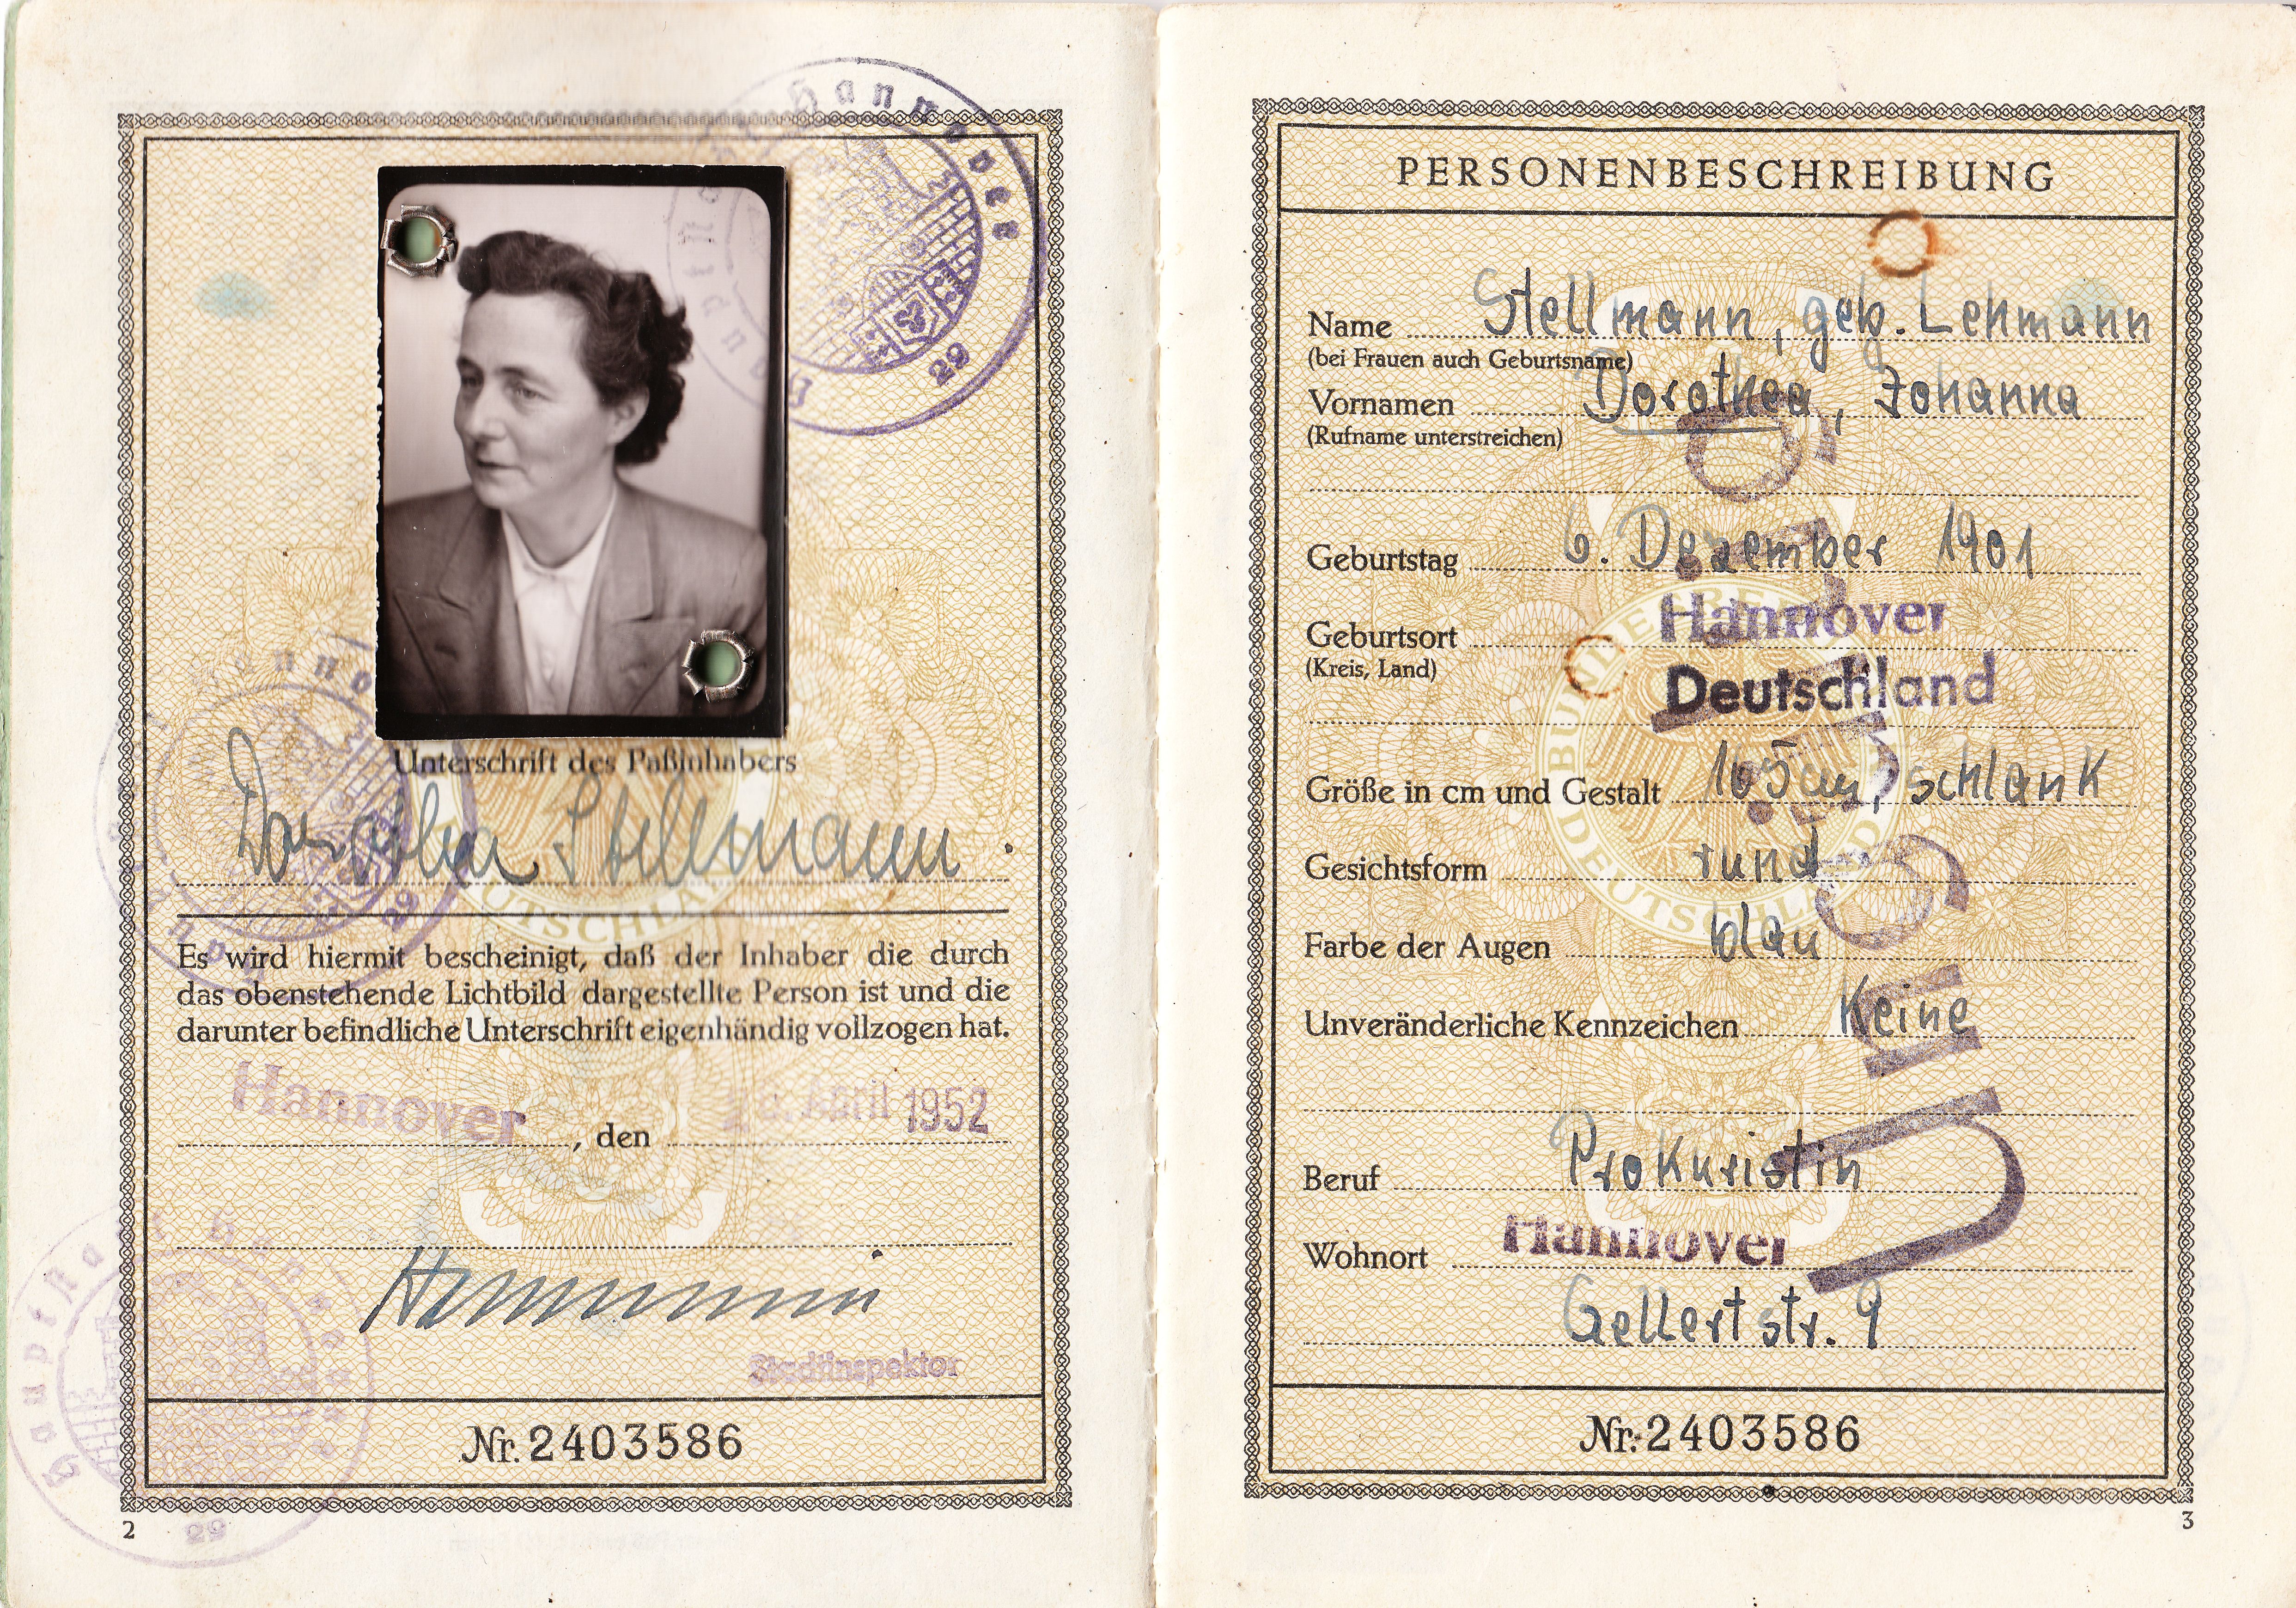 Hannover
29
Unterschrift des Paßinhabers
Dorothea Stellmann.
Es wird hiermit bescheinigt, daß der Inhaber die durch
das obenstehende Lichtbild dargestellte Person ist und die
darunter befindliche Unterschrift eigenhändig vollzogen hat.
Hannover, den April 1952
Stadtinspektor
Nr. 2403586
2
Hauptstadt Hannover
29
PERSONENBESCHREIBUNG
Name Stellmann, geb. Lehmann
(bei Frauen auch Geburtsname)
Vornamen Dorothea, Johanna
(Rufname unterstreichen)
Geburtstag 6. Dezember 1901
Geburtsort Hannover
(Kreis, Land) Deutschland
Größe in cm und Gestalt 165cm, schlank
Gesichtsform rund
Farbe der Augen blau
Unveränderliche Kennzeichen Keine
Beruf Prokuristin
Wohnort Hannover
Gellertstr. 9
Ungültig
BUNDESREPUBLIK DEUTSCHLAND
Nr. 2403586
3